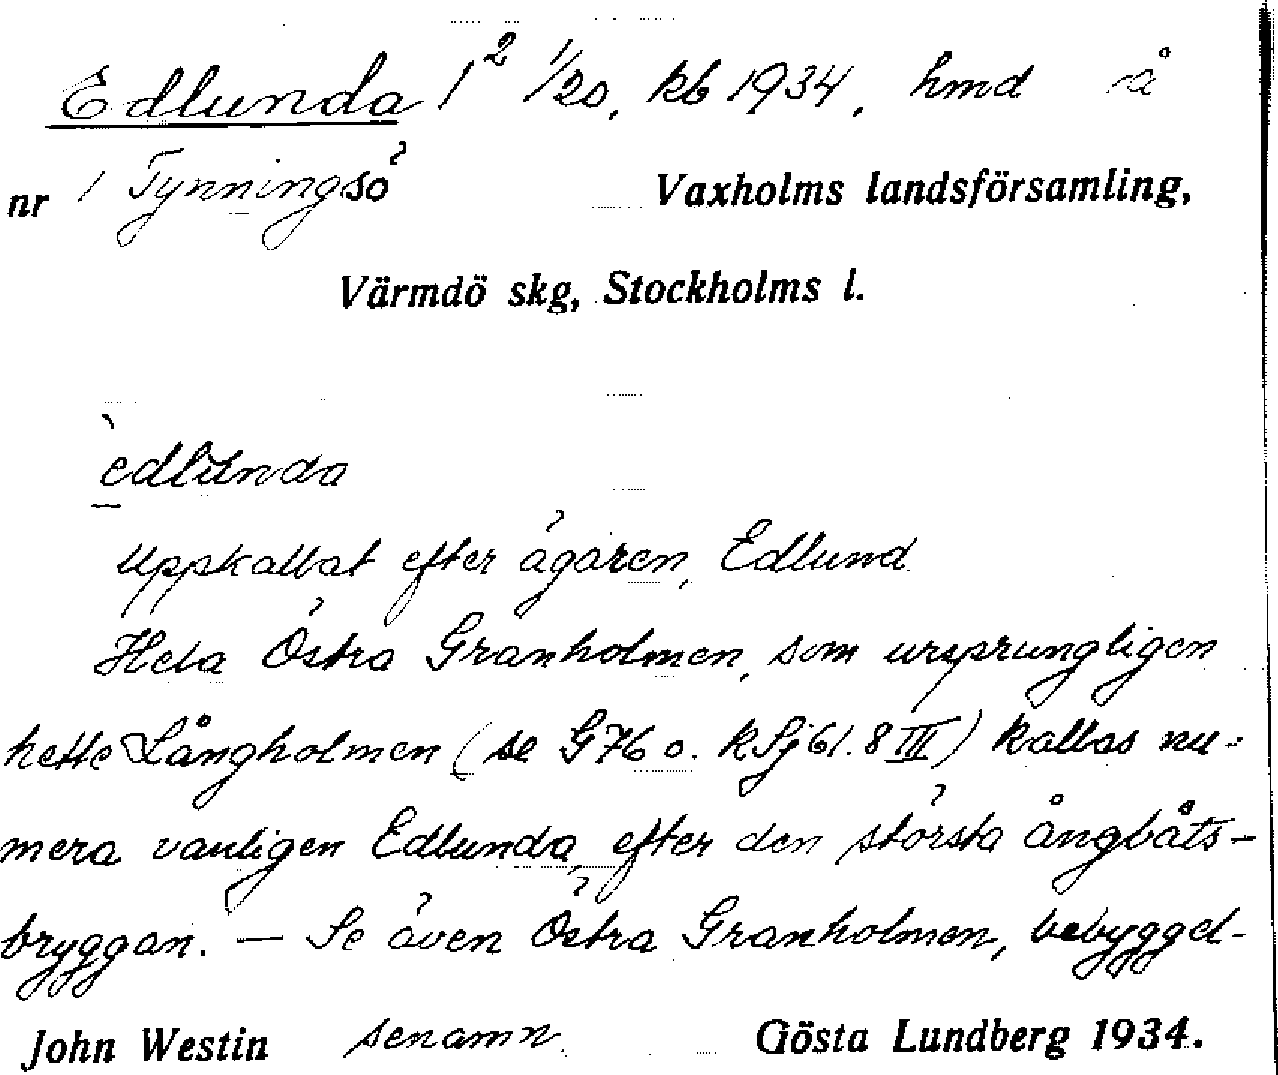 Edlunda 1² 1/20, kb 1934, hmd å
nr 1 Tynningsö Vaxholms landsförsamling,
Värmdö skg, Stockholms l.
èdlunda
Uppkallat efter ägaren, Edlund
Hela Östra Granholmen, som ursprungligen
hette Långholmen (se G76 o. kSj61.8 III) kallas nu-
mera vanligen Edlunda, efter den största ångbåts-
bryggan. — Se även Östra Granholmen, bebyggel-
John Westin senamn. Gösta Lundberg 1934.